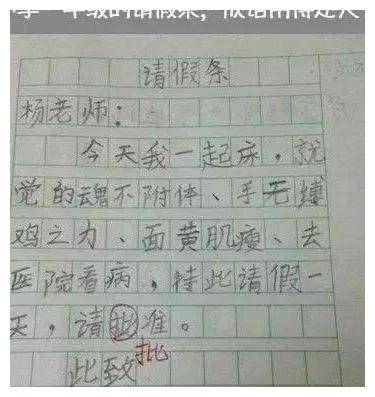 年级的请假条，
请假条
杨老师：
今天我一起床，就
觉的魂不附体、手无缚
鸡之力、面黄肌瘦、去
医院看病，特此请假一
天，请准。
批
此致